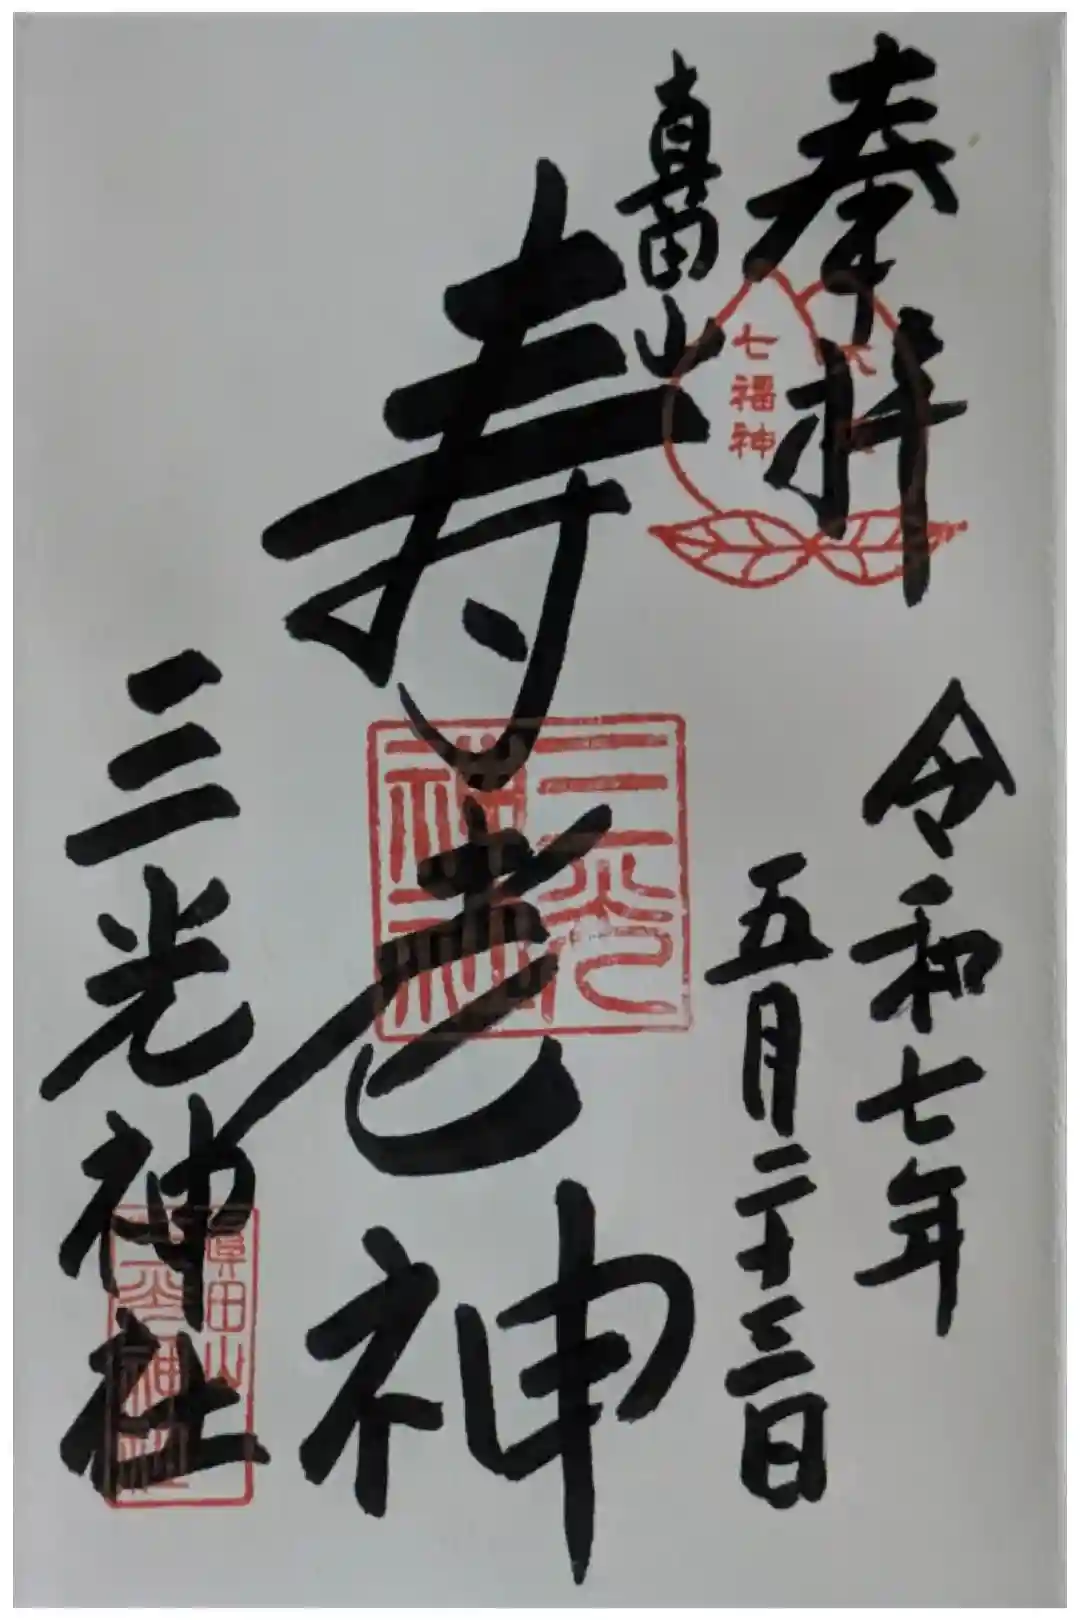 奉拝
令和七年
五月二十三日
真田山
七福神
寿老神
三光
神社
三光神社
眞田山
三光神社